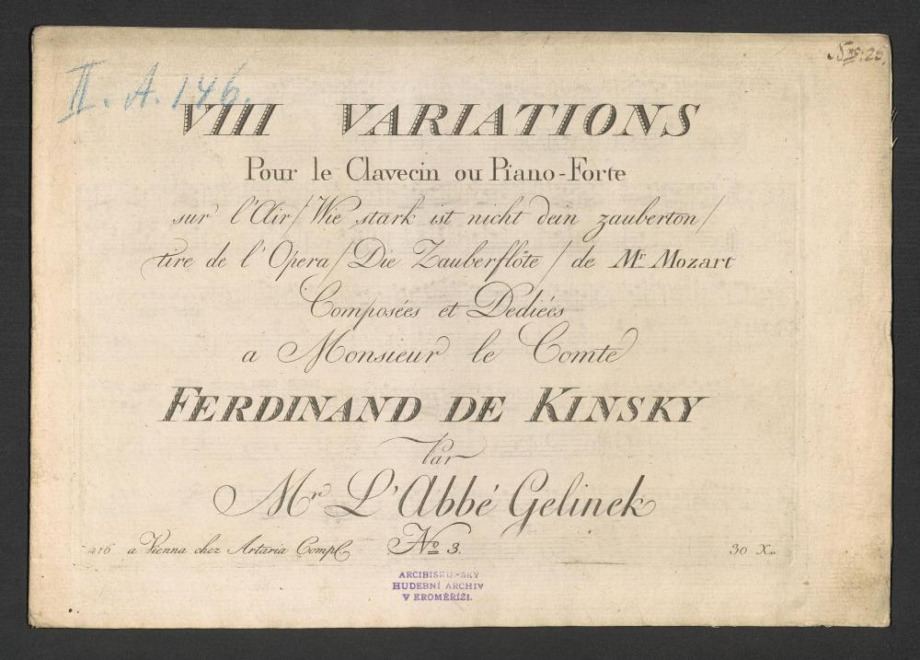 Nro: 25.
II. A. 146.
VIII VARIATIONS
Pour le Clavecin ou Piano-Forte
sur l'Air / Wie stark ist nicht dein zauberton /
tire de l'Opera / Die Zauberflöte / de Mr Mozart
Composées et Dediées
a Monsieur le Comte
FERDINAND DE KINSKY
Par
Mr L'Abbé Gelinek
416 a Vienna chez Artaria Comp. No 3. 30 X.
ARCIBISKUPSKÝ
HUDEBNÍ ARCHIV
V KROMĚŘÍŽI.